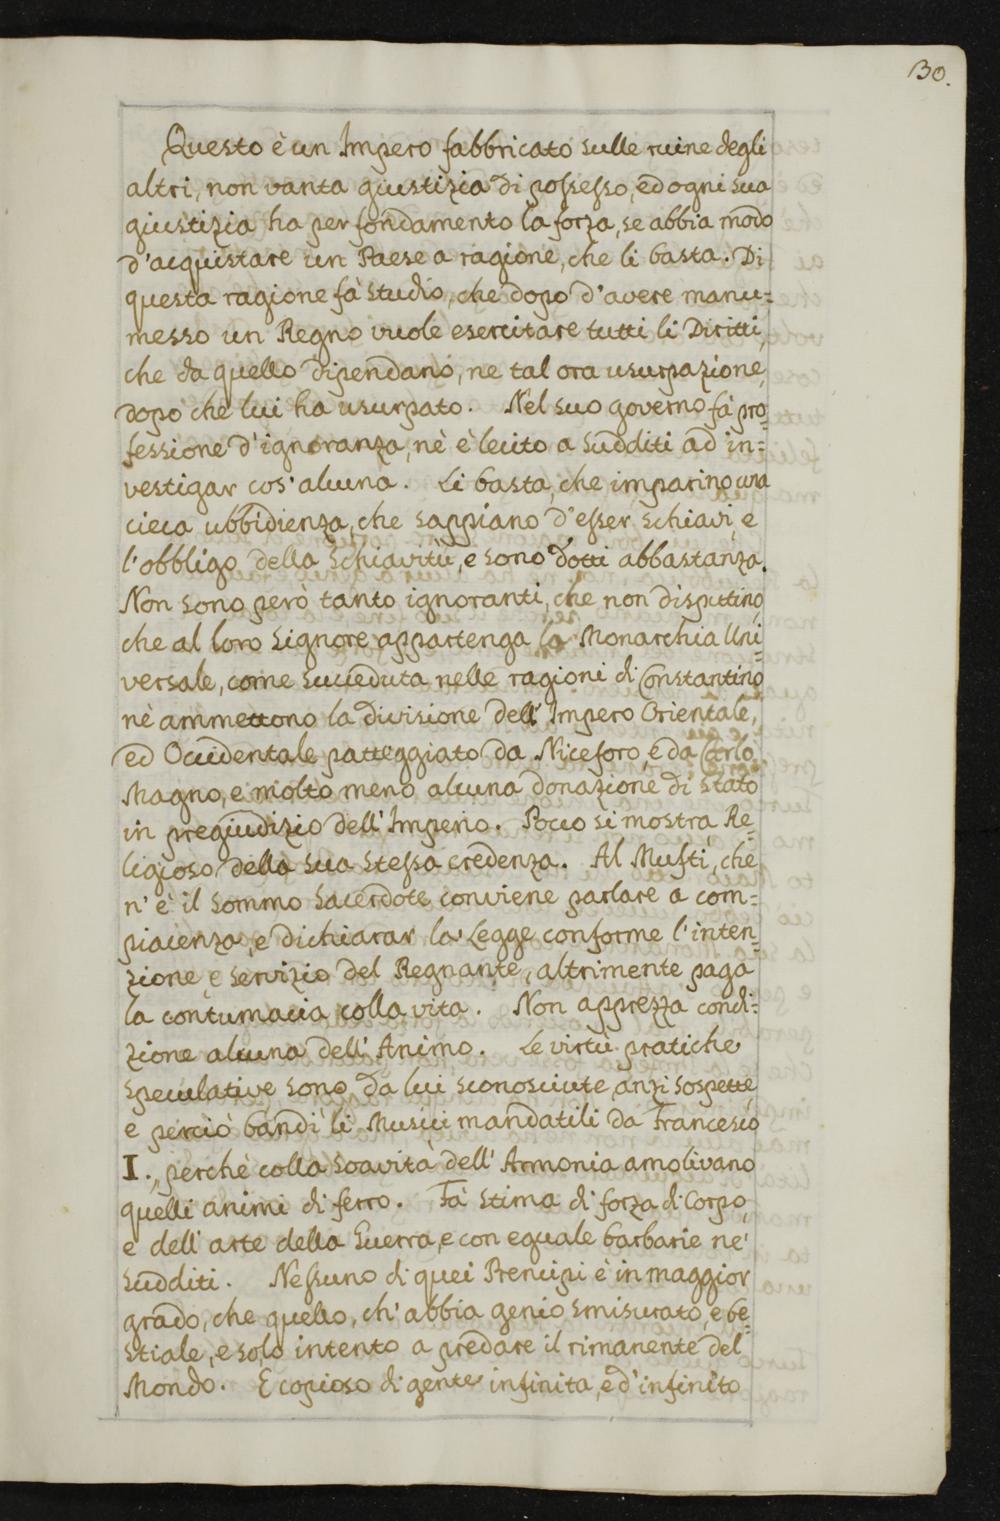 30.
Questo è un Impero fabbricato sulle ruine degli
altri, non vanta giustizia di possesso, ed ogni sua
giustizia ha per fondamento la forza, se abbia modo
d'acquistare un Paese a ragione, che li basta. Di
questa ragione fà studio, che dopo d'avere manu=
messo un Regno vuole esercitare tutti li Diritti,
che da quello dipendano, ne tal ora usurpazione,
dopo che lui ha usurpato. Nel suo governo fà pro=
fessione d'ignoranza, nè è lecito a sudditi ad in=
vestigar cos'alcuna. Li basta, che imparino una
cieca ubbidienza, che sappiano d'esser schiavi, e
l'obbligo della schiavitù, e sono dotti abbastanza.
Non sono però tanto ignoranti, che non disputtino,
che al loro Signore appartenga la Monarchia Uni=
versale, come succeduta nelle ragioni di Constantino
nè ammettono la divisione dell'Impero Orientale,
ed Occidentale patteggiato da Niceforo, e da Carlo
Magno, e molto meno alcuna donazione di stato
in pregiudizio dell'Imperio. Poco si mostra Re=
ligioso della sua stessa credenza. Al Muftì, che
n'è il sommo sacerdote conviene parlare a com=
piacenza, e dichiarar la Legge conforme l'inten=
zione, e servizio del Regnante, altrimente paga
la contumacia colla vita. Non apprezza condi=
zione alcuna dell'Animo. Le virtù pratiche
speculative sono da lui sconosciute, anzi sospette,
e perciò bandì li Musici mandatili da Francesco
I., perchè colla soavità dell'Armonia amolivano
quelli animi di ferro. Fà stima di forza di Corpo,
e dell'arte della Guerra, e con eguale barbarie ne'
sudditi. Nessuno di quei Prencipi è in maggior
grado, che quello, ch'abbia genio smisurato, e be=
stiale, e solo intento a predare il rimanente del
Mondo. E copioso di gente infinita, e d'infinito